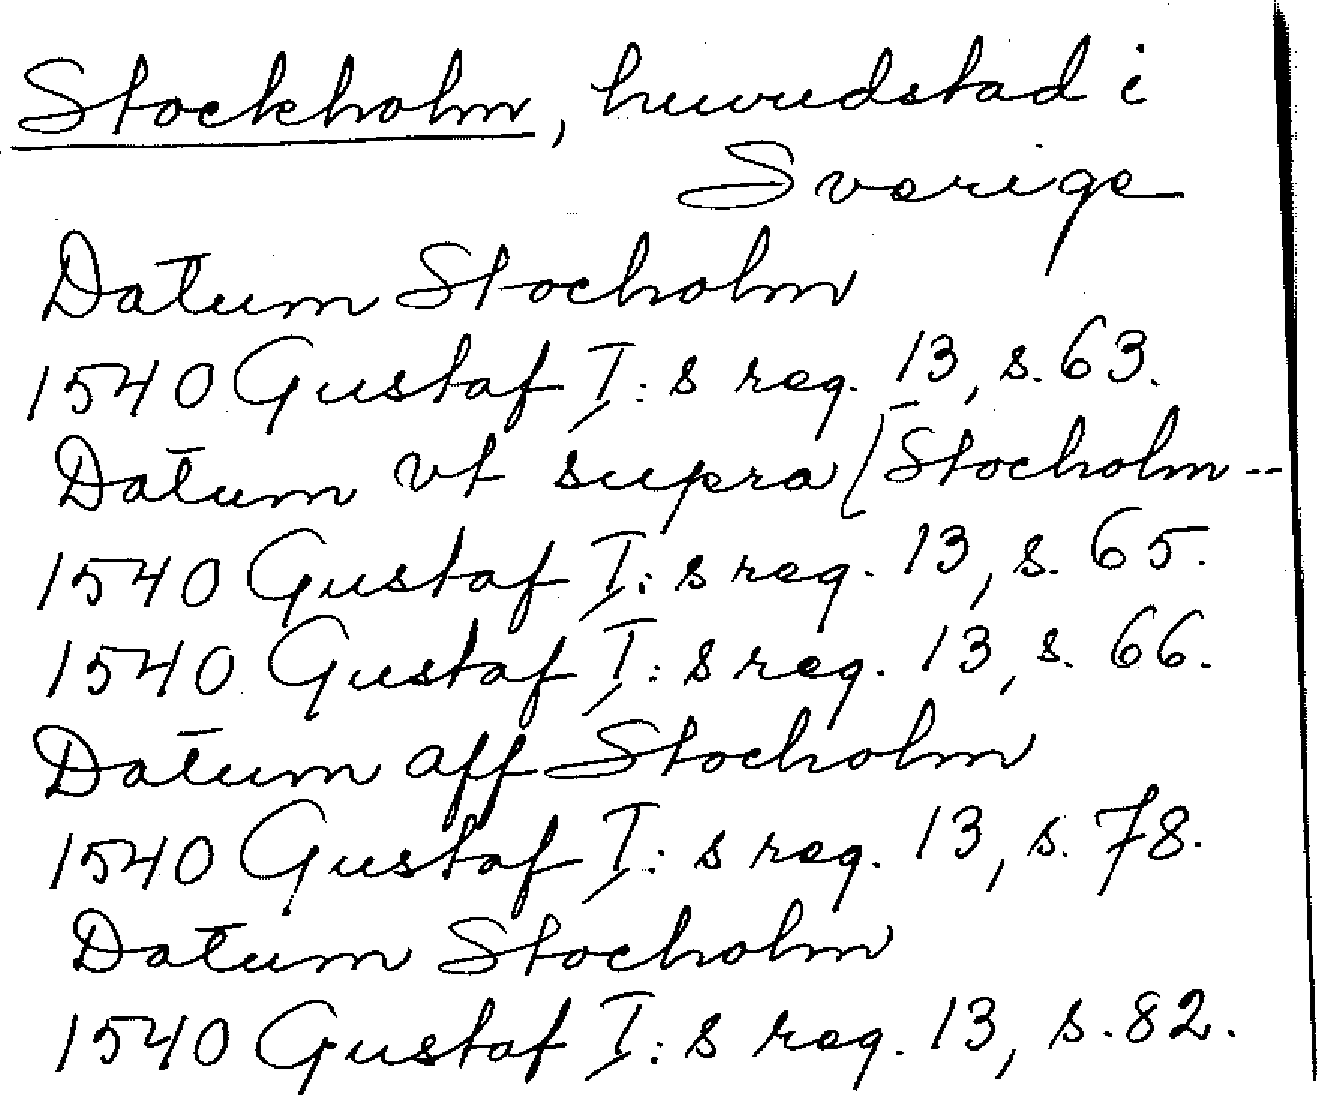 Stockholm, huvudstad i
Sverige
Datum Stocholm
1540 Gustaf I:s reg. 13, s. 63.
Datum vt supra [Stocholm--
1540 Gustaf I:s reg. 13, s. 65.
1540 Gustaf I:s reg. 13, s. 66.
Datum aff Stocholm
1540 Gustaf I:s reg. 13, s. 78.
Datum Stocholm
1540 Gustaf I:s reg. 13, s. 82.